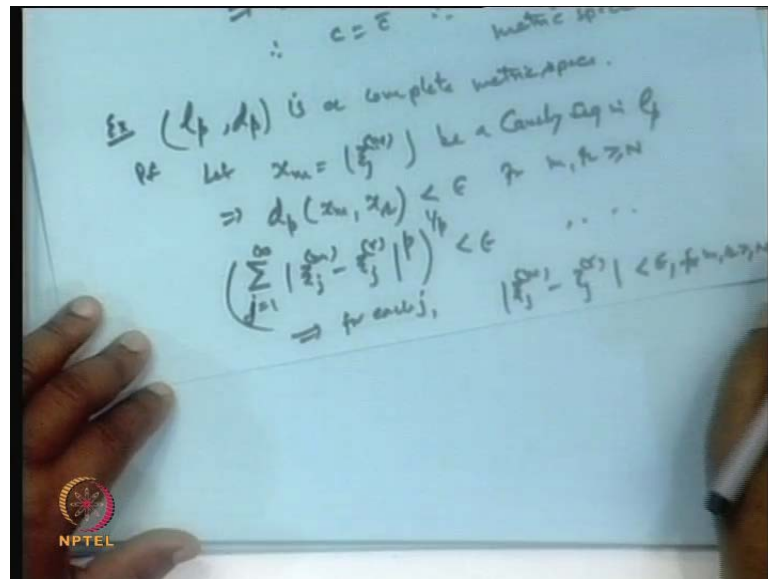 ∴ c = c̄ ∴ metric space
Ex (lp, dp) is a complete metric space.
Pf Let xm = (ξj^(m)) be a Cauchy seq in lp
⇒ dp (xm, xr) < ϵ for m, r ≥ N
(∑_{j=1}^∞ |ξj^(m) - ξj^(r)|^p)^{1/p} < ϵ . . . .
⇒ for each j, |ξj^(m) - ξj^(r)| < ϵ, for m, r ≥ N
NPTEL